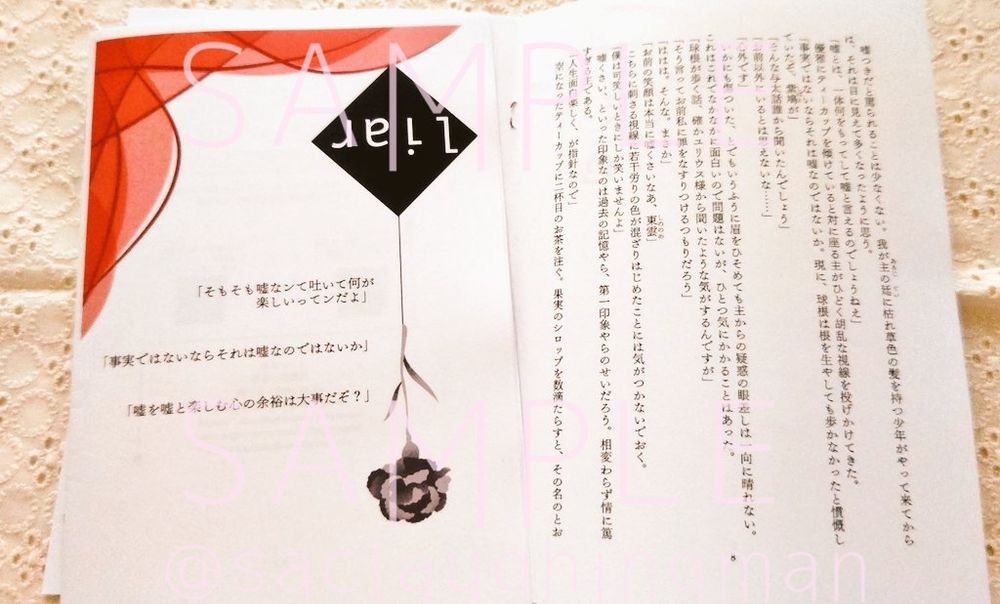 嘘つきだと罵られることは少なくない。我が主の廷に枯れ草色の髪を持つ少年がやって来てから
は、それは目に見えて多くなったように思う。
「嘘とは、一体何をもってして嘘と言えるのでしょうねえ」
優雅にティーカップを傾けていると対に座る主がひどく胡乱な視線を投げかけてきた。
「事実ではないならそれは嘘なのではないか。現に、球根は根を生やしても歩かなかったと憤慨し
ていたぞ、紫鳩が」
「そんな与太話誰から聞いたんでしょう」
「お前以外にいるとは思えないな……」
「心外です」
いかにも傷ついた、とでもいうふうに眉をひそめても主からの疑惑の眼差しは一向に晴れない。
これはこれでなかなかに面白いので問題はないが、ひとつ気にかかることはあった。
「球根が歩く話、確かユリウス様から聞いたような気がするんですが」
「そう言ってお前私に罪をなすりつけるつもりだろう」
「ははは。そんな、まさか」
「お前の笑顔は本当に嘘くさいなあ、東雲」
しののめ
こちらに刺さる視線に若干労りの色が混ざりはじめたことには気がつかないでおく。
「僕は可笑しいときにしか笑いませんよ」
嘘くさい、といった印象なのは過去の記憶やら、第一印象やらのせいだろう。相変わらず情に篤
すぎる主である。
「人生面白楽しく、が指針なので」
空になったティーカップに二杯目のお茶を注ぐ。果実のシロップを数滴たらすと、その名のとお
8
Liar
「そもそも嘘なンて吐いて何が
楽しいってンだよ」
「事実ではないならそれは嘘なのではないか」
「嘘を嘘と楽しむ心の余裕は大事だぞ？」
SAMPLE
SAMPLE